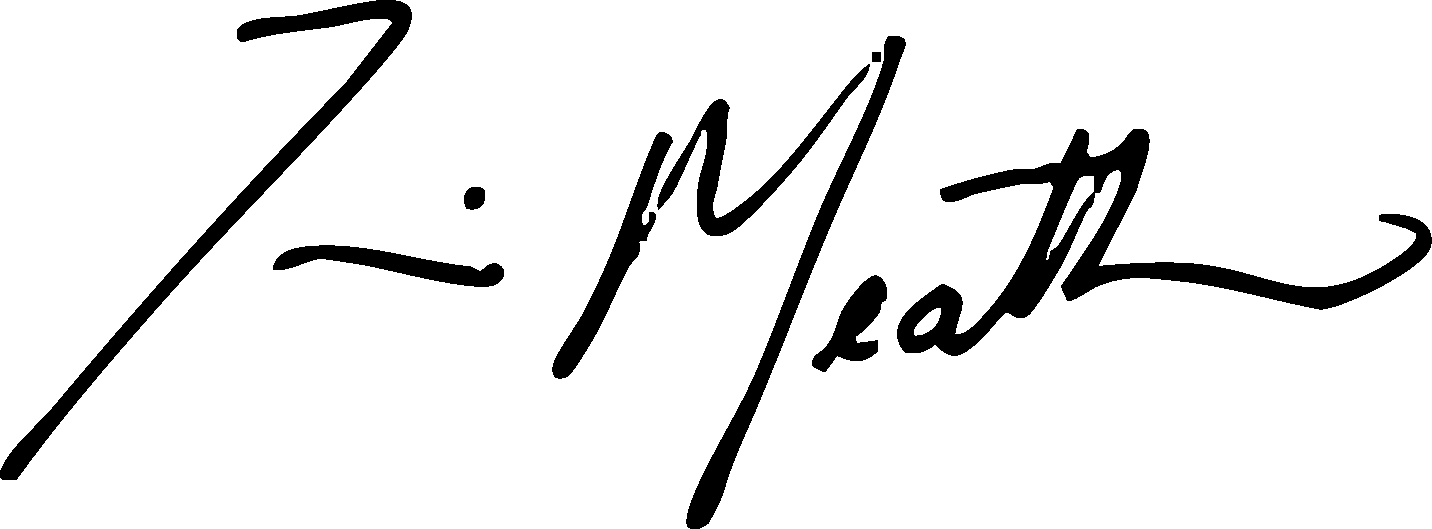 Tim Meath